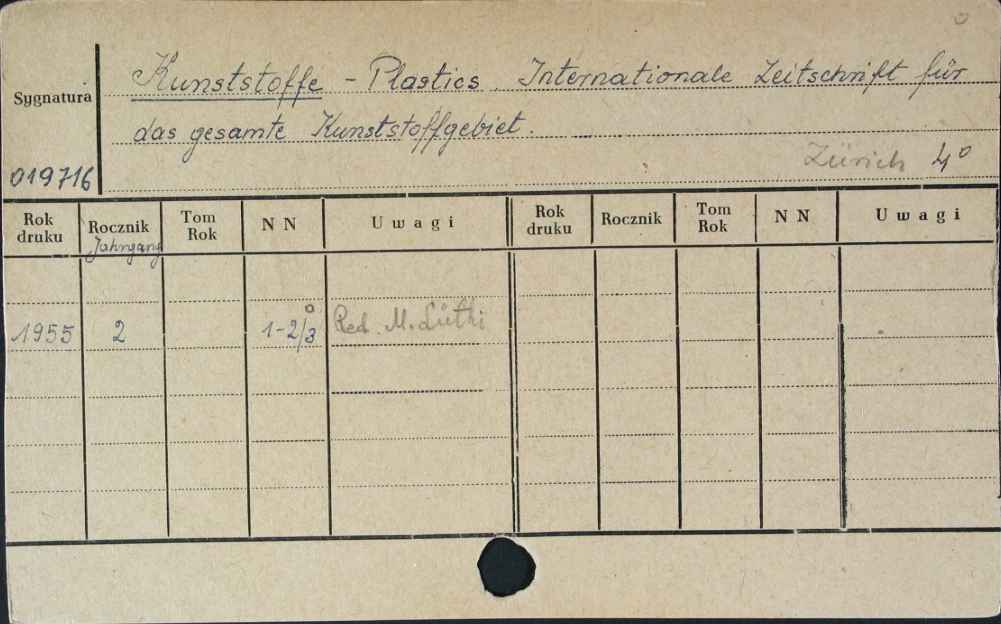 Sygnatura
Kunststoffe - Plastics. Internationale Zeitschrift für
das gesamte Kunststoffgebiet.
Zürich 4°
019716
Rok druku Rocznik Tom Rok NN Uwagi Rok druku Rocznik Tom Rok NN Uwagi
Jahrgang
1955 2 1-2/3 Red. M. Lüthi